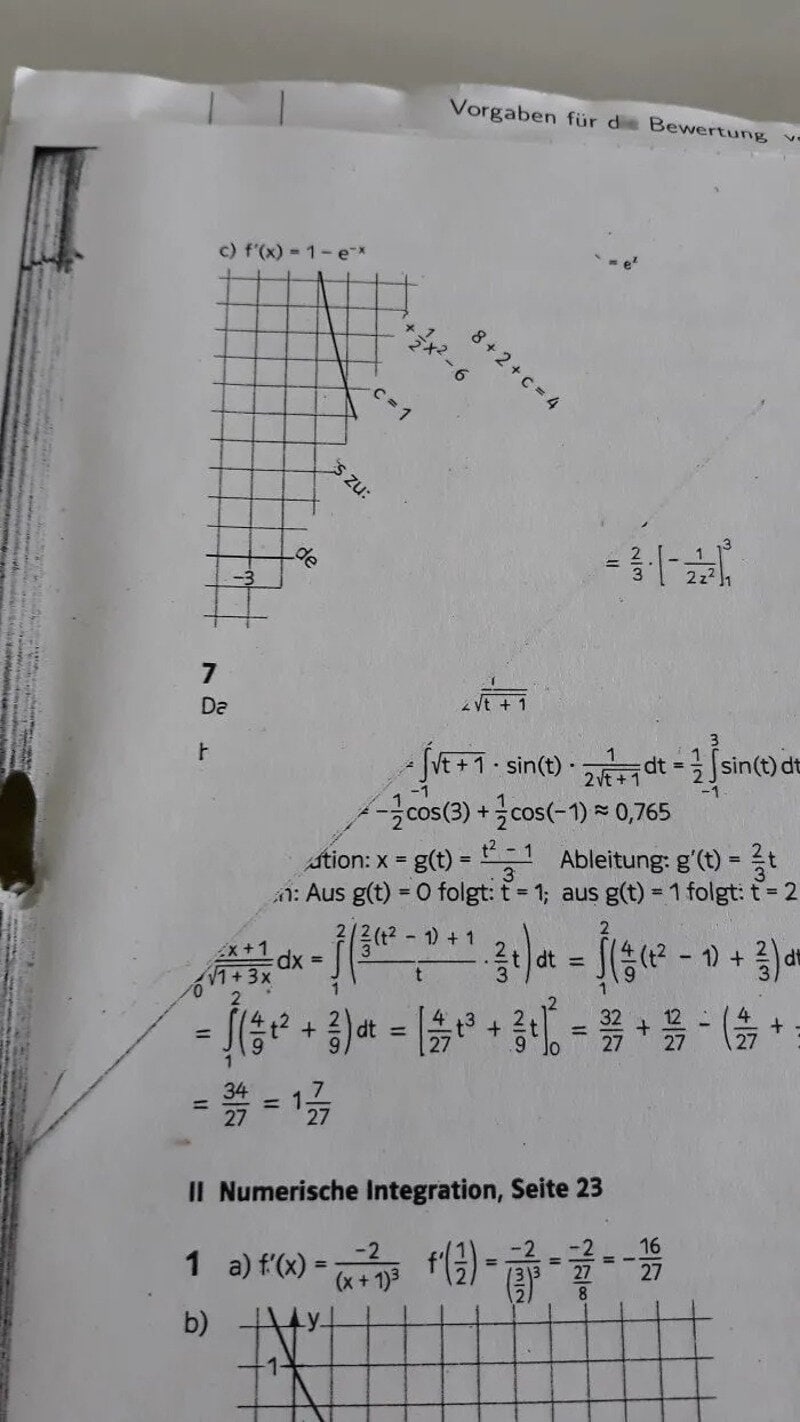 Vorgaben für Bewertung
c) f′(x) = 1 − e⁻ˣ
= eᶻ
8 + 2 + c = 4
c = 1
s zu:
-3
= 2/3 · [− 1/(2z²)]₁³
7
√t + 1
∫√t + 1 · sin(t) · 1/(2√t + 1) dt = 1/2 ∫₋₁³ sin(t) dt
−1/2 cos(3) + 1/2 cos(−1) ≈ 0,765
ution: x = g(t) = (t² − 1)/3 Ableitung: g′(t) = 2/3 t
n: Aus g(t) = 0 folgt: t = 1; aus g(t) = 1 folgt: t = 2
∫₀ (2x + 1)/√(1 + 3x) dx = ∫₁² ((2/3 (t² − 1) + 1)/t · 2/3 t) dt = ∫₁² (4/9 (t² − 1) + 2/3) dt
= ∫₁² (4/9 t² + 2/9) dt = [4/27 t³ + 2/9 t]₀² = 32/27 + 12/27 − (4/27 +
= 34/27 = 1 7/27
II Numerische Integration, Seite 23
1 a) f′(x) = −2/(x + 1)³ f′(1/2) = −2/(3/2)³ = −2/(27/8) = −16/27
b)
y
1